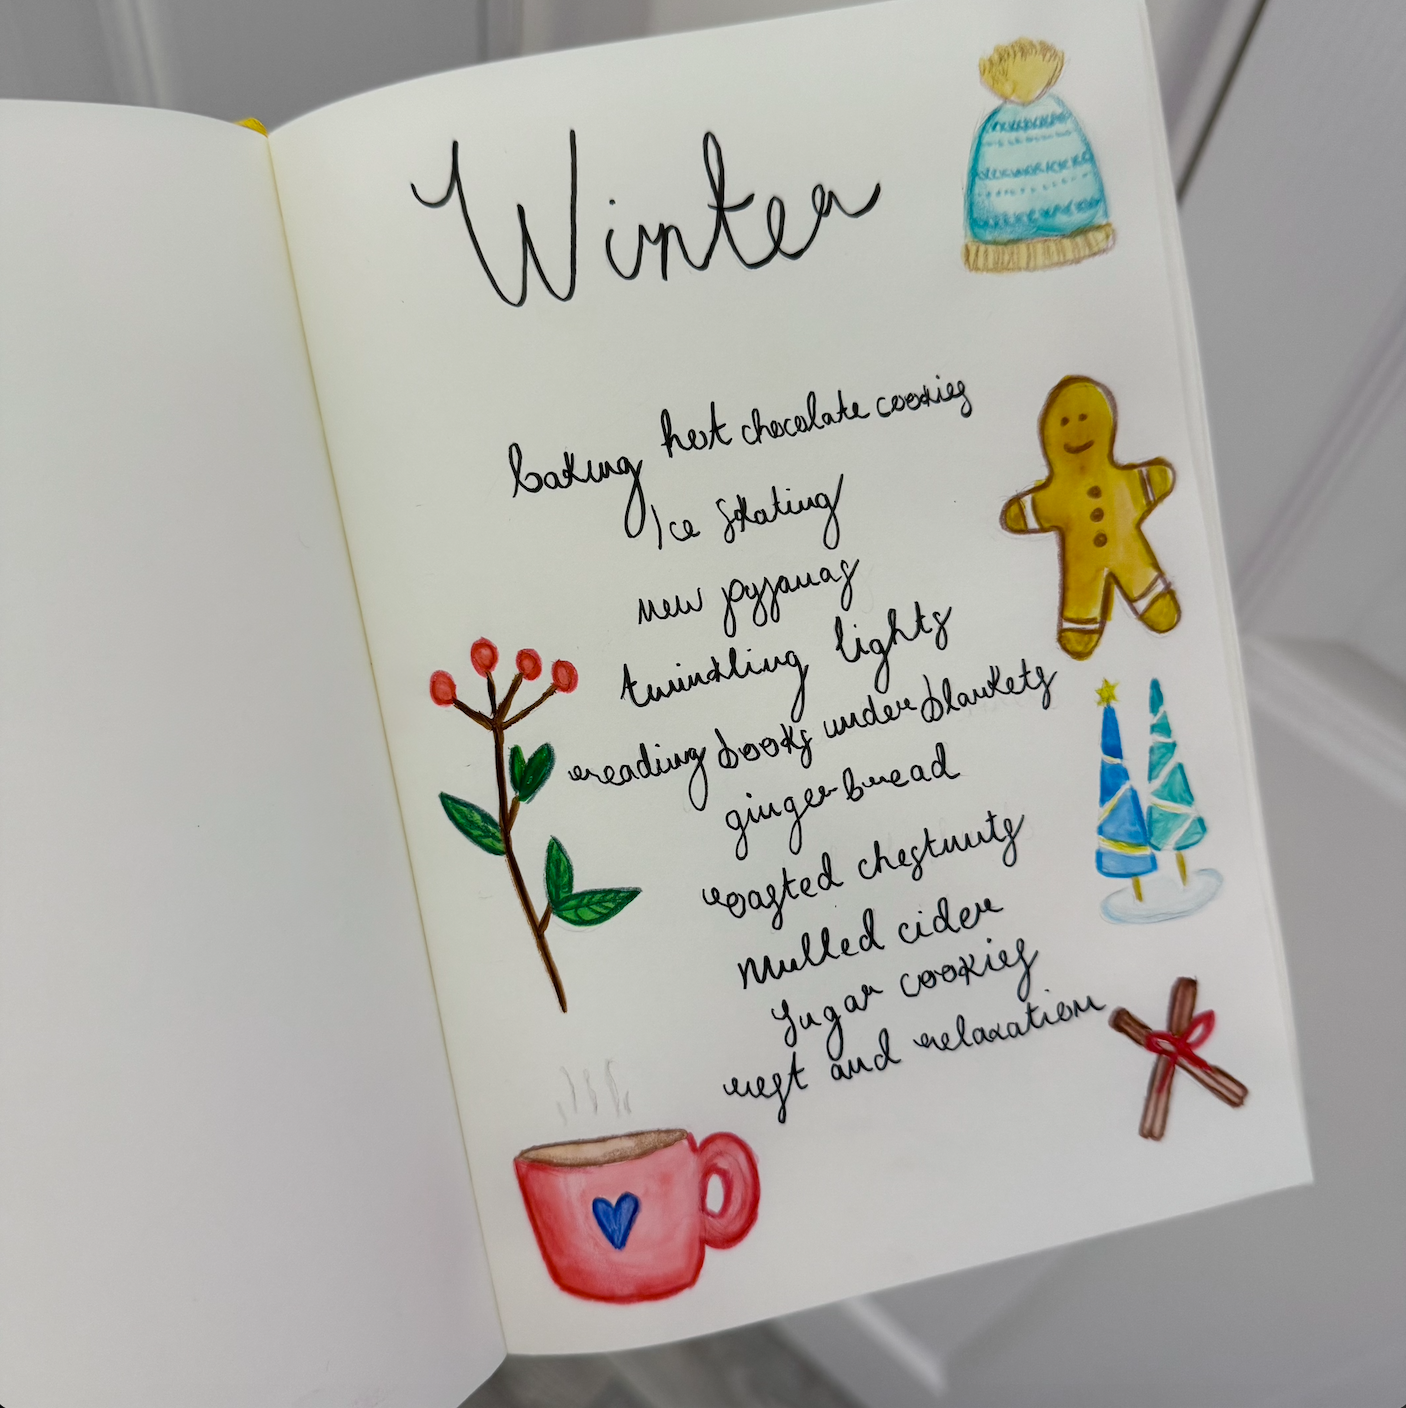 Winter
baking hot chocolate cookies
Ice skating
new pyjamas
twinkling lights
reading books under blankets
gingerbread
roasted chestnuts
Mulled cider
Sugar cookies
rest and relaxation